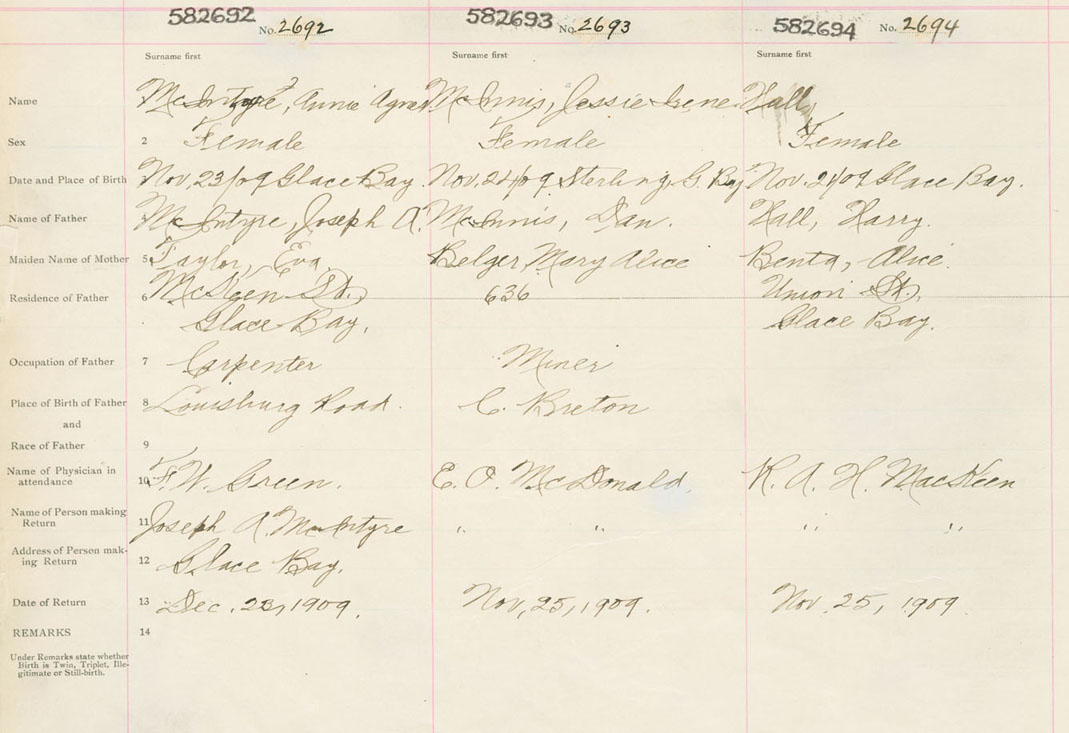 582692 No. 2692 582693 No. 2693 582694 No. 2694
Surname first Surname first Surname first
Name McIntyre, Annie Agnes McInnis, Jessie Irene Hall,
Sex 2 Female Female Female
Date and Place of Birth Nov, 23/09 Glace Bay. Nov. 24/09 Sterling, G. Bay Nov. 21/09 Glace Bay.
Name of Father McIntyre, Joseph A. McInnis, Dan. Hall, Harry.
Maiden Name of Mother 5 Taylor, Eva Belger, Mary Alice Benta, Alice.
Residence of Father 6 McKeen St., 636 Union St.,
Glace Bay, Glace Bay.
Occupation of Father 7 Carpenter Miner
Place of Birth of Father 8 Louisburg Road. C. Breton
and
Race of Father 9
Name of Physician in
attendance 10 F. W. Green. E. O. McDonald. K. A. H. MacKeen
Name of Person making
Return 11 Joseph A. McIntyre " " " "
Address of Person mak-
ing Return 12 Glace Bay.
Date of Return 13 Dec. 23, 1909. Nov, 25, 1909. Nov. 25, 1909
REMARKS 14
Under Remarks state whether
Birth is Twin, Triplet, Ille-
gitimate or Still-birth.